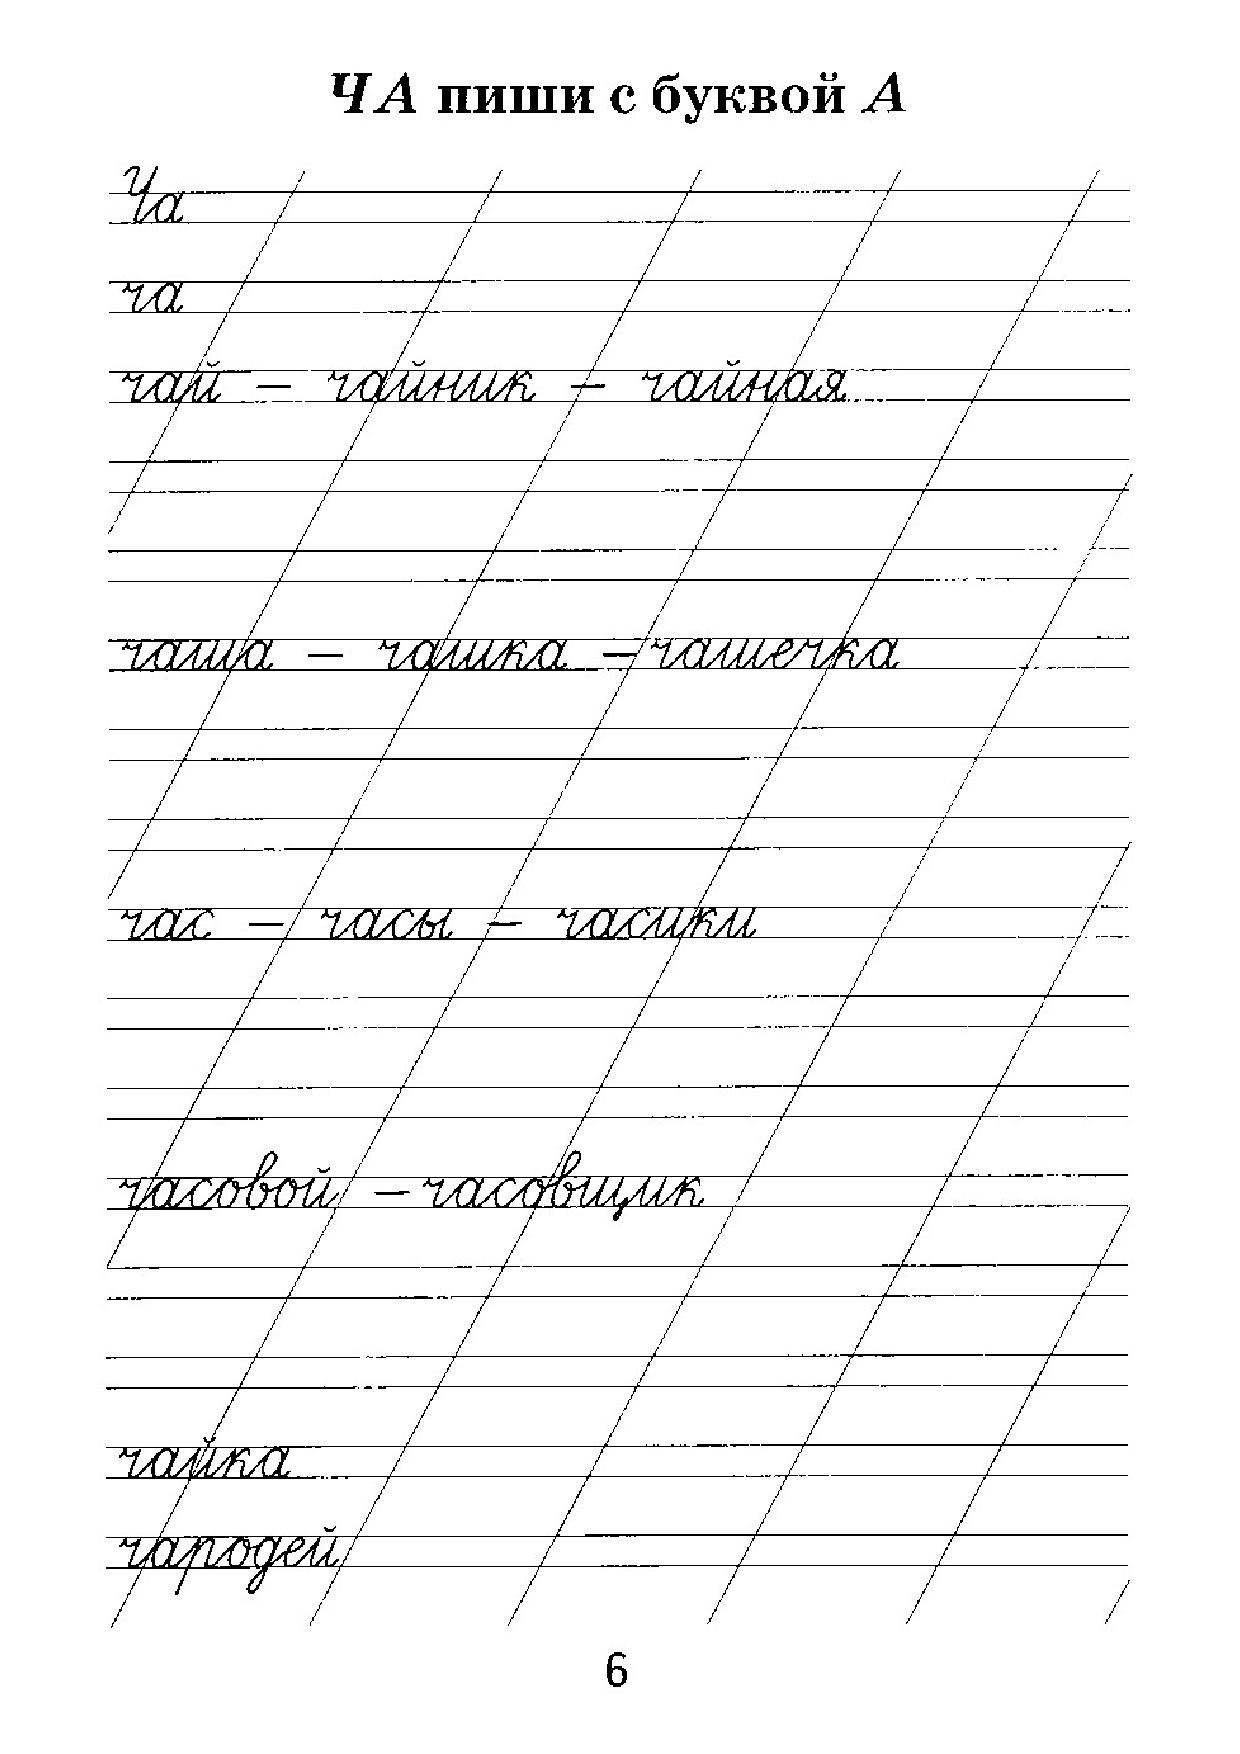 ЧА пиши с буквой А
Ча
ча
чай – чайник – чайная
чаша – чашка – чашечка
час – часы – часики
часовой – часовщик
чайка
чародей
6